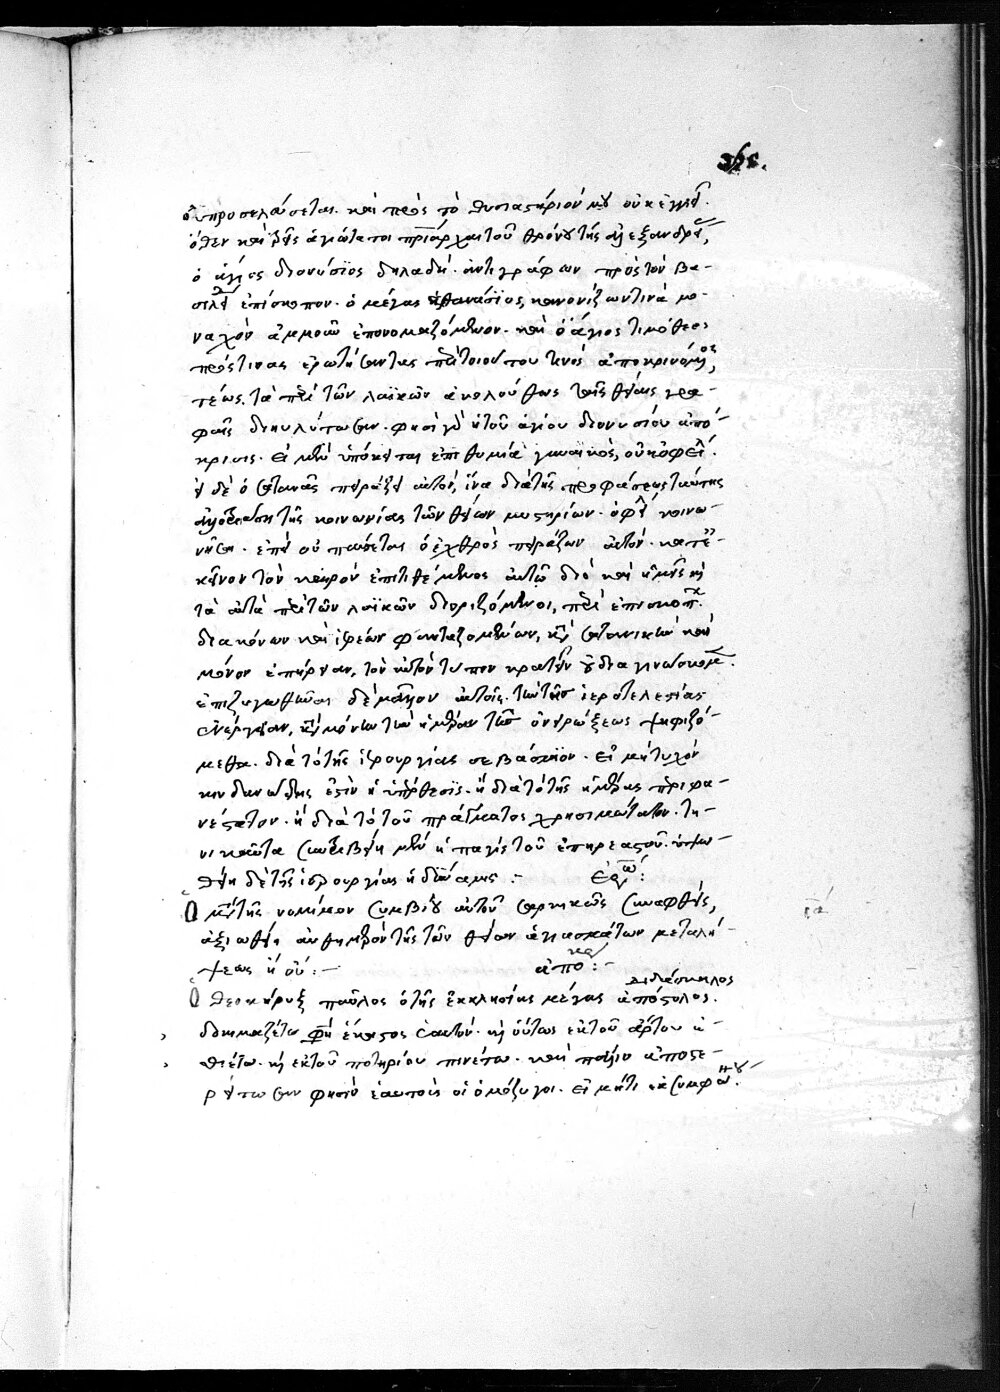 οὐ προσελεύσεται. καὶ πρὸς τὸ θυσιαστήριόν μου οὐκ ἐγγιεῖ.
ὅθεν καὶ τρεῖς ἁγιώτατοι πριάρχαι τοῦ θρόνου τῆς ἀλεξανδρείας,
ὁ ἅγιος διονύσϊος δηλαδή. ἀντιγράφων πρὸς τὸν βα-
σιλείδην ἐπίσκοπον. ὁ μέγας ἀθανάσϊος, κανονίζων τινὰ μο-
ναχὸν ἀμμοῦν ἐπονομαζόμενον. καὶ ὁ ἅγιος τιμόθεος
πρός τινας ἐρωτήσαντας περὶ τοιούτου τινὸς ἀποκρινόμενος,
τέως. τὰ περὶ τῶν λαϊκῶν ἀκολούθως ταῖς θείαις γρα-
φαῖς διηυλύτωσαν. φησὶ γὰρ ἡ τοῦ ἁγίου διονυσίου ἀπό-
κρισις. εἰ μὲν ὑπόκειται ἐπιθυμία γυναικὸς, οὐκ ὀφείλει.
εἰ δὲ ὁ σατανᾶς πειράζει αὐτὸν, ἵνα διὰ τῆς προφάσεως ταύτης
ἀλλοτριώσῃ τῆς κοινωνίας τῶν θείων μυστηρίων. ὀφείλει κοινω-
νῆσαι. ἐπεὶ οὐ παύσεται ὁ ἐχθρὸς πειράζων αὐτόν. κατ' ἐ-
κεῖνον τὸν καιρὸν ἐπιτιθέμενος αὐτῷ διὸ καὶ ἡμεῖς καὶ
τὰ αὐτὰ περὶ τῶν λαϊκῶν διοριζόμενοι, περὶ ἐπισκόπων.
διακόνων καὶ ἱερέων φανταζομένων, κατὰ σατανικὴν καὶ
μόνον ἐπήρειαν, τὸν αὐτὸν τύπον κρατεῖν οὐ διαγινώσκομεν.
ἐπιζυγωθῆναι δὲ μᾶλλον αὐτοῖς. τὴν τῆς ἱεροτελεσίας
ἐνέργειαν, κατὰ μόνην τὴν ἡμέραν τῆς ὀνειρώξεως ψηφιζό-
μεθα. διὰ τὸ τῆς ἱερουργίας σεβάσμϊον. εἰ μὴ τυχὸν
κινδυνώδης ἐστὶν ἡ ὑπόθεσις. ἢ διὰ τὸ τῆς ἡμέρας περιφα-
νέστατον. ἢ διὰ τὸ τοῦ πράγματος χρησιμώτατον. τη-
νικαῦτα συντριβείη μὲν ἡ παγὶς τοῦ ἐπηρεαστοῦ. ὑψω-
θείη δὲ τῆς ἱερουργίας ἡ δύναμις :- ἐρώ:
Ὁ μετὰ τῆς νομίμου συμβίου αὐτοῦ σαρκικῶς συναφθεὶς,
ἀξιωθείη αὐθημερὸν τῆς τῶν θείων ἁγιασμάτων μεταλή-
ψεως ἢ οὔ :- ἀπόκρ :-
διδάσκαλος
Ὁ θεοκήρυξ παῦλος ὁ τῆς ἐκκλησίας μέγας ἀπόστολος.
δοκιμαζέτω φησὶ ἕκαστος ἑαυτόν. καὶ οὕτως ἐκ τοῦ ἄρτου ἐ-
σθιέτω. καὶ ἐκ τοῦ ποτηρίου πινέτω. καὶ πάλιν ἀποστε-
ρείτωσαν φησὶν ἑαυτοὺς οἱ ὁμόζυγοι. εἰ μήτι ἐκ συμφώνου.